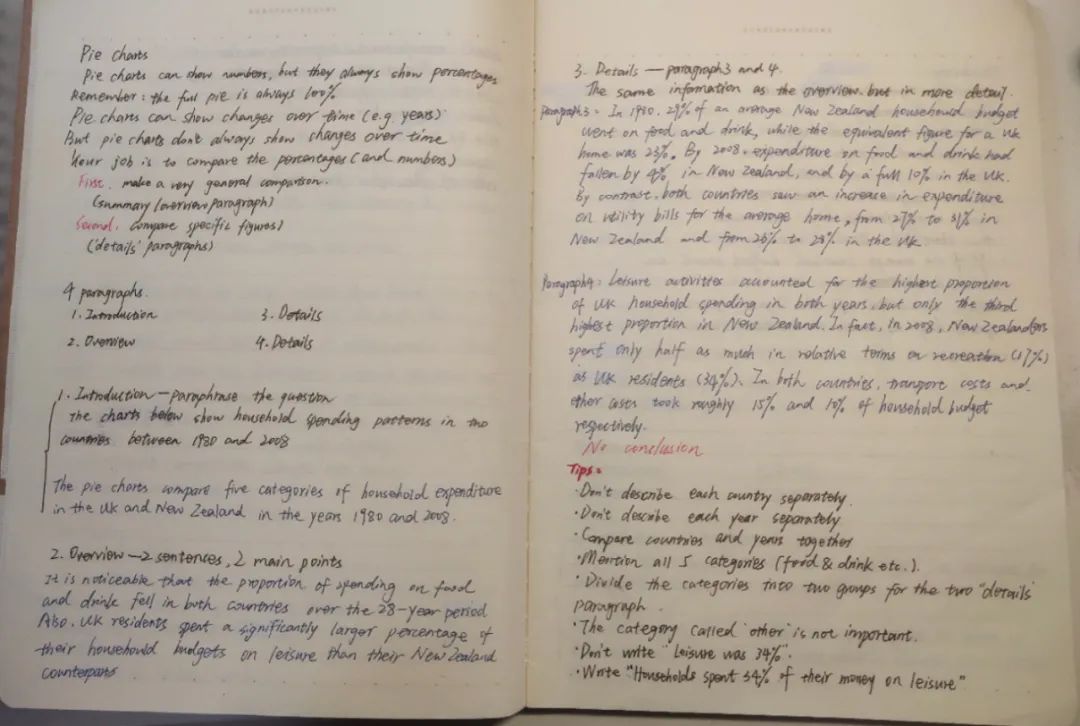 Pie charts
Pie charts can show numbers, but they always show percentages
Remember: the full pie is always 100%
Pie charts can show changes over time (e.g. years)
But pie charts don't always show changes over time
Your job is to compare the percentages (and numbers)
First, make a very general comparison.
(summary/overview paragraph)
Second, compare specific figures)
('details' paragraphs)
4 paragraphs.
1. Introduction 3. Details
2. Overview 4. Details
1. Introduction — paraphrase the question
The charts below show household spending patterns in two
countries between 1980 and 2008
The pie charts compare five categories of household expenditure
in the UK and New Zealand in the years 1980 and 2008.
2. Overview — 2 sentences, 2 main points
It is noticeable that the proportion of spending on food
and drink fell in both countries over the 28-year period
Also, UK residents spent a significantly larger percentage of
their household budgets on leisure than their New Zealand
counterparts
3. Details — paragraph 3 and 4.
The same information as the overview, but in more detail.
Paragraph3: In 1980, 29% of an average New Zealand household budget
went on food and drink, while the equivalent figure for a UK
home was 23%. By 2008, expenditure on food and drink had
fallen by 4% in New Zealand, and by a full 10% in the UK.
By contrast, both countries saw an increase in expenditure
on utility bills for the average home, from 27% to 31% in
New Zealand and from 26% to 28% in the UK
Paragraph4: Leisure activities accounted for the highest proportion
of UK household spending in both years, but only the third
highest proportion in New Zealand. In fact, in 2008, New Zealanders
spent only half as much in relative terms on recreation (17%)
as UK residents (34%). In both countries, transport costs and
other costs took roughly 15% and 10% of household budget
respectively.
No conclusion
Tips:
·Don't describe each country separately
·Don't describe each year separately
·Compare countries and years together
·Mention all 5 categories (food & drink etc.).
·Divide the categories into two groups for the two "details"
paragraph.
·The category called 'other' is not important.
·Don't write "Leisure was 34%".
·Write "Households spent 34% of their money on leisure"